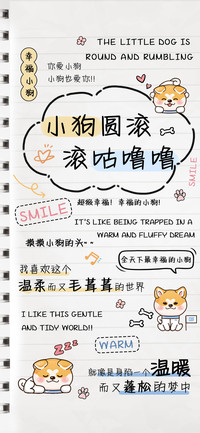 THE LITTLE DOG IS
ROUND AND RUMBLING
幸福小狗
你爱小狗
小狗也爱你!!
小狗圆滚
滚咕噜噜
SMILE
SMILE
超级幸福! 幸福的小狗!
IT'S LIKE BEING TRAPPED IN A
WARM AND FLUFFY DREAM
摸摸小狗的头--
全天下最幸福的小狗
我喜欢这个
温柔而又毛茸茸的世界
I LIKE THIS GENTLE
AND TIDY WORLD!!
ZZZ
WARM
就像是身陷一个温暖
而又蓬松的梦中